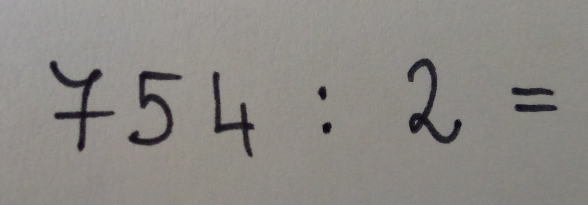 754 : 2 =